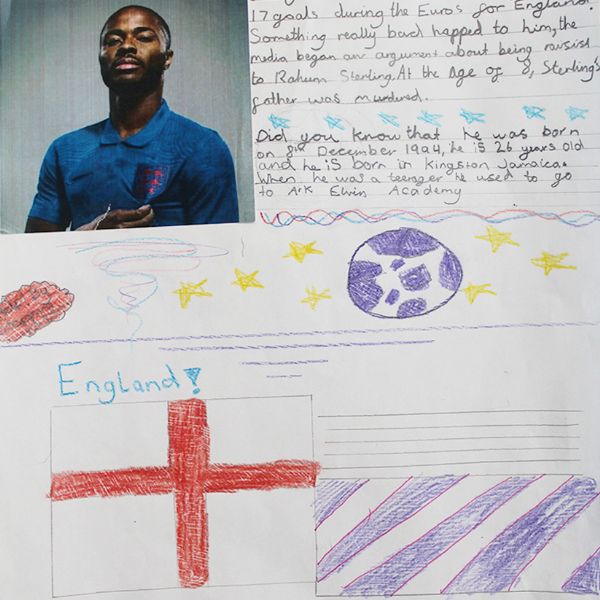 17 goals during the Euros for England.
Something really bad happed to him, the
media began an argument about being rarsist
to Raheem Sterling. At the Age of 2, Sterling's
father was murdured.
Did you know that he was born
on 8th December 1994, he is 26 years old
and he is born in Kingston Jamaica.
When he was a teenager he used to go
to Ark Elvin Academy
England!